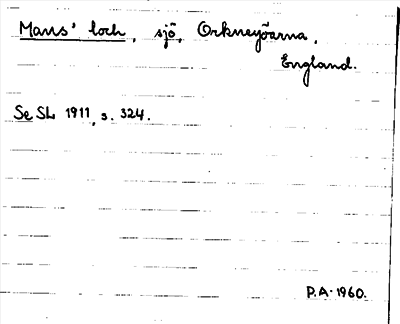 Mans' loch, sjö, Orkneyöarna,
England.
Se SL 1911, s. 324.
P.A. 1960.